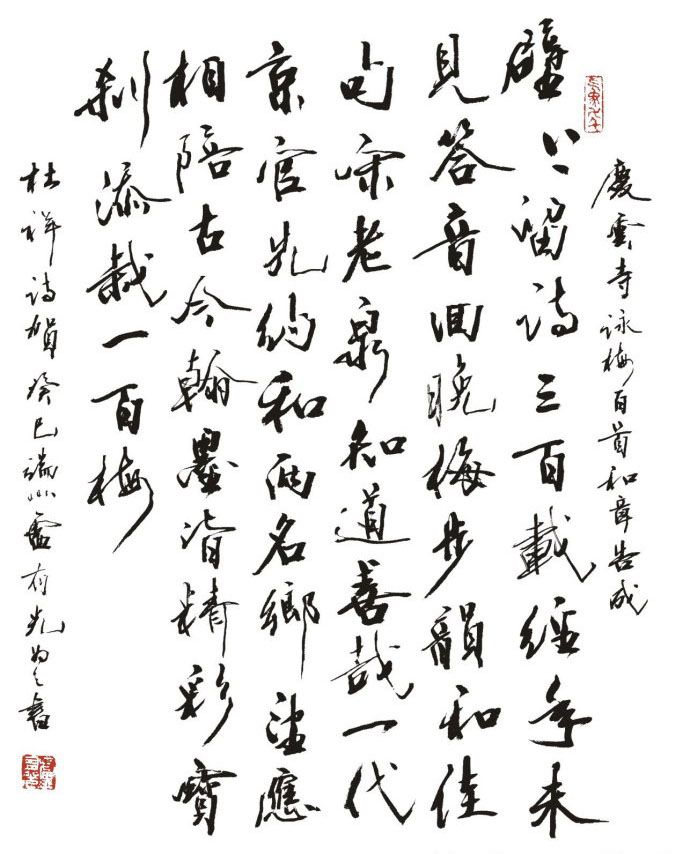 慶雲寺詠梅百首和章告成
壁上留詩三百載經年未
見答音回晚梅步韻和佳
句老泉知道善哉一代
京官先約和兩名鄉應
相陪古今翰墨皆精彩寶
刹添栽一百梅
詩賀癸巳端州盧有光書